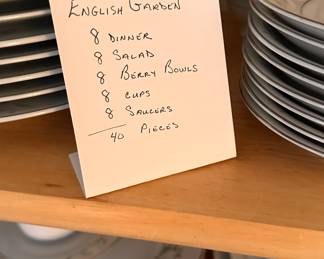 English Garden
8 Dinner
8 Salad
8 Berry Bowls
8 cups
8 Saucers
40 Pieces